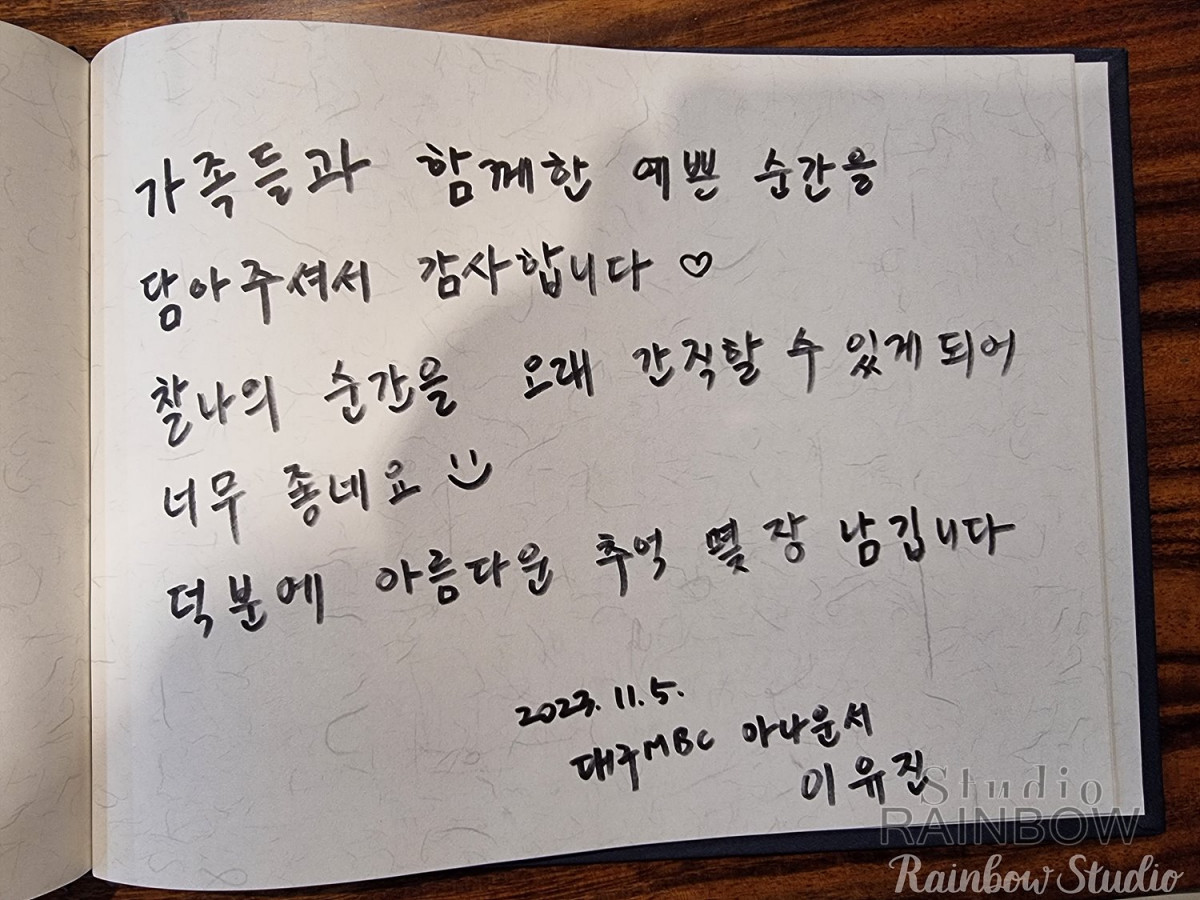 가족들과 함께한 예쁜 순간을
담아주셔서 감사합니다 ♡
찰나의 순간을 오래 간직할 수 있게 되어
너무 좋네요 :)
덕분에 아름다운 추억 몇 장 남깁니다
2023. 11. 5.
대구MBC 아나운서
이유진
Studio
RAINBOW
Rainbow Studio